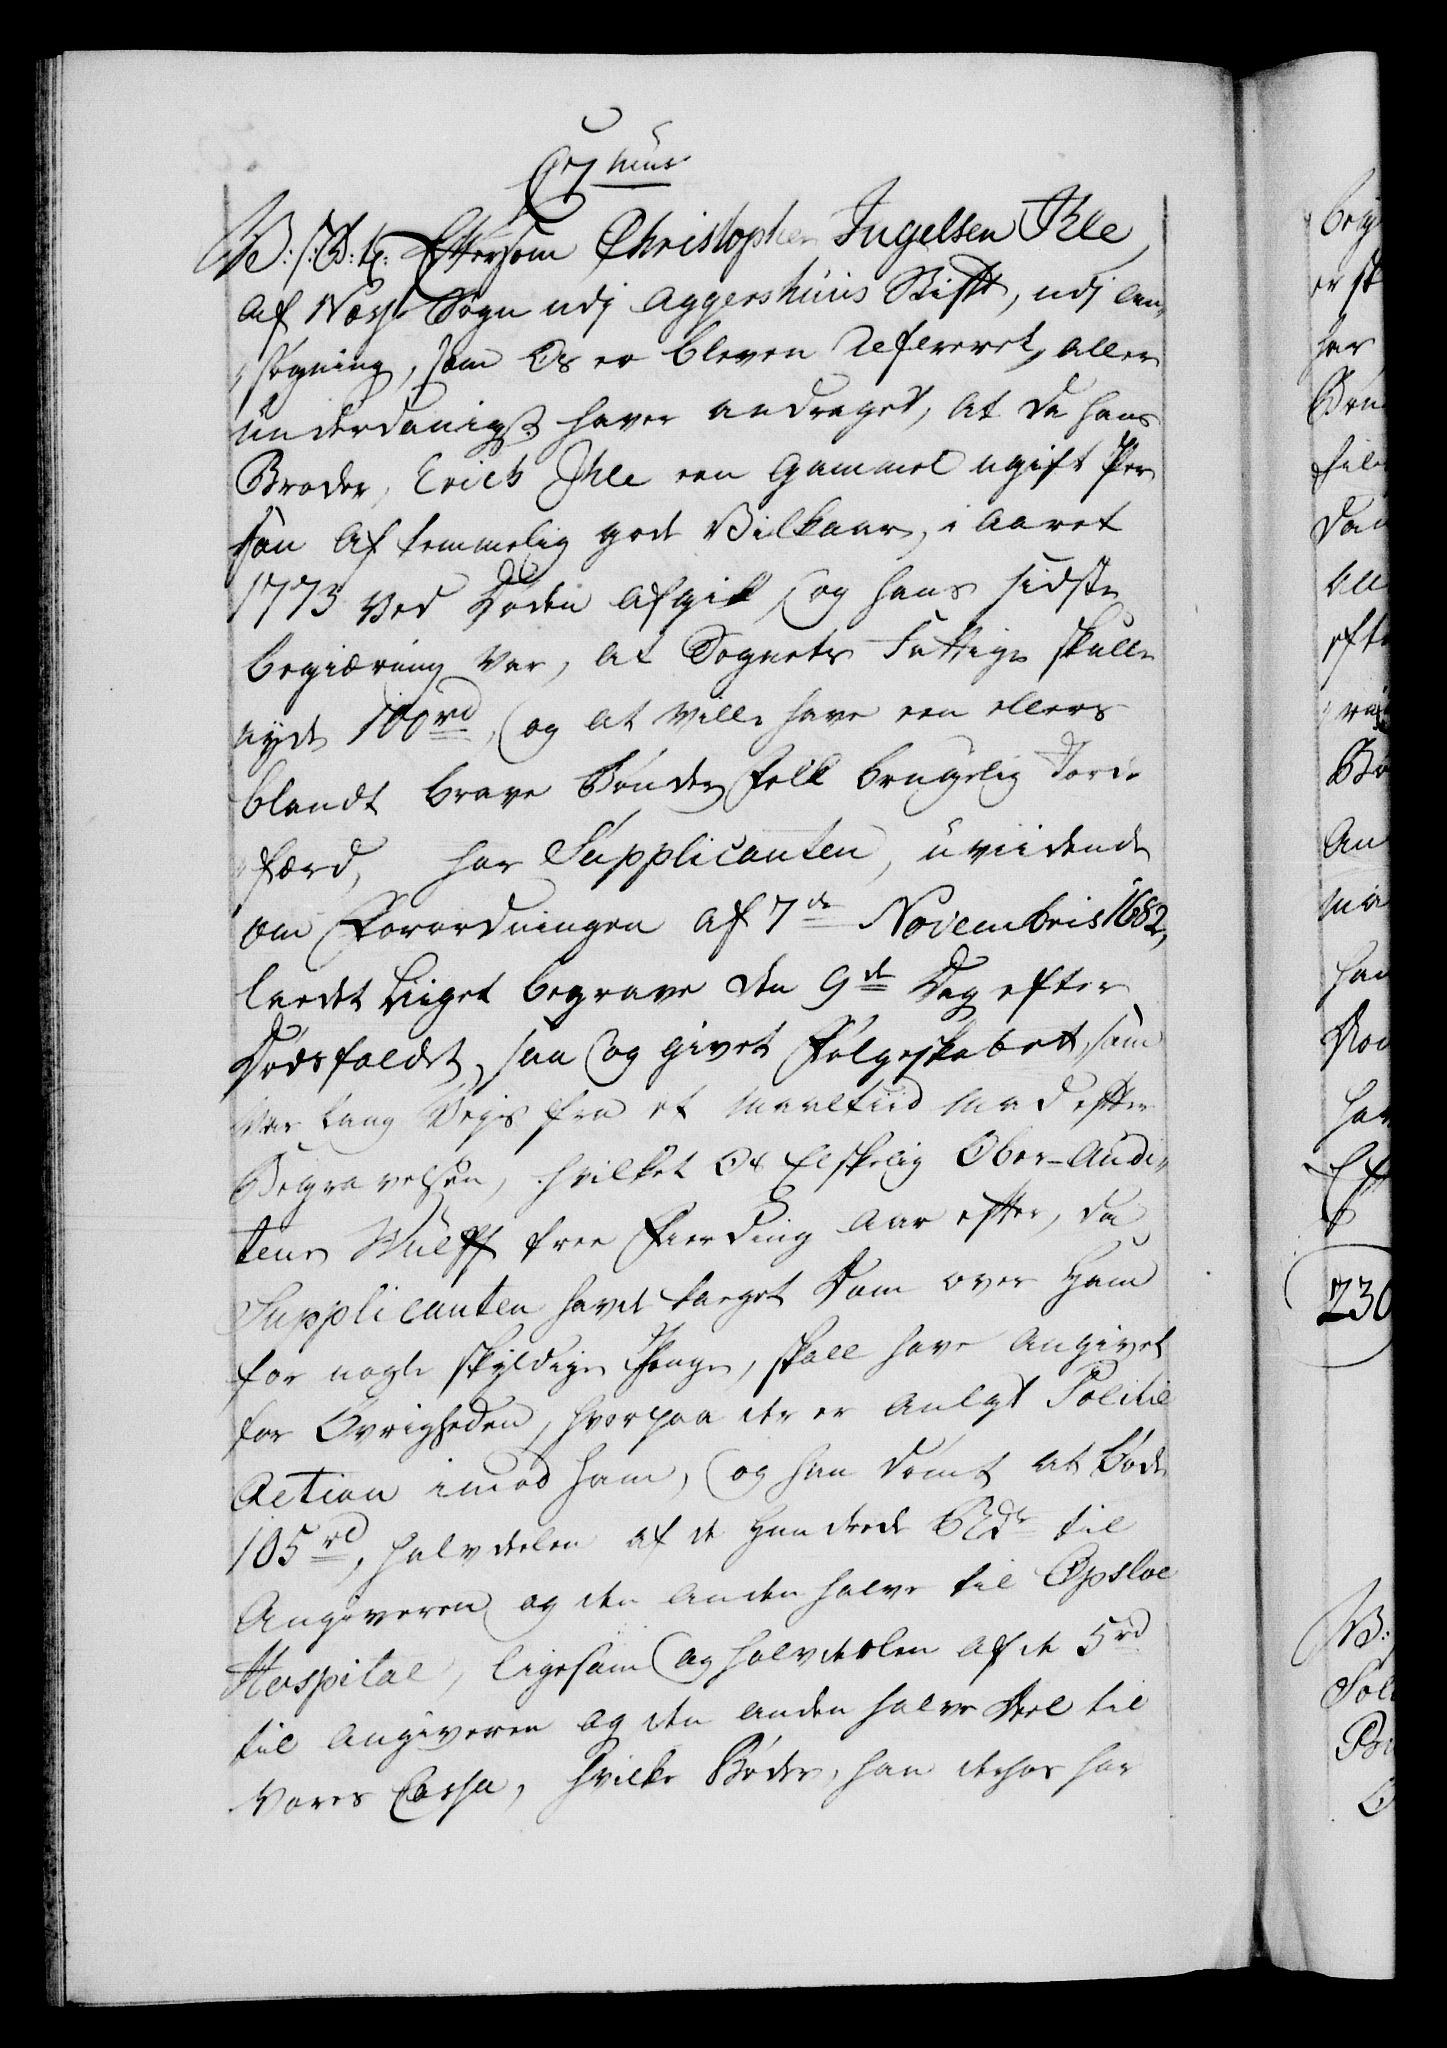 C7mus
V: G: t: Eftersom Christopher Ingelsen Ihle
af Næss Sogn udj Aggershuus Stift, udj An-
søgning, som Os er bleven Refereret, aller
underdanigst haver andraget, at da hans
Broder, Erich Ihle een Gammel ugift Per
son af temmelig gode Vilkaar, i Aaret
1773 ved Døden afgik, og hans sidste
begiæring var, at Sognets Fattige skulle
nyde 100 rd, og at ville have een ellers
blandt brave Bønder Folk brugelig Jorde
færd, har Supplicanten, uviidende
om Forordningen af 7de Novembris 1682,
ladet Liiget begrave den 9de Dag efter
Dødsfaldet, saa og givet Følgeskabet, som
var lang Vejs fra et Maaltiid Mad efter
Begravelsen, hvilket Os Elskelig Ober-Audi-
teur Wulff tree Fierding Aar efter, da
Supplicanten havde taeget Dom over Ham
for nogle skyldige Penge, skall have angivet
for Øvrigheden, hvorpaa der er anlagt Politie
Action imod ham, og han dømt at bøde
105 rd, halvdeelen af de Hundrede Rdr til
Angiveren og den anden halve til Opsloe
Hospital, ligesom og halvdeelen af de 5 rd
til Angiveren og den anden halve Deel til
Vores Cassa, hvilke Bøder, han derhos har
230